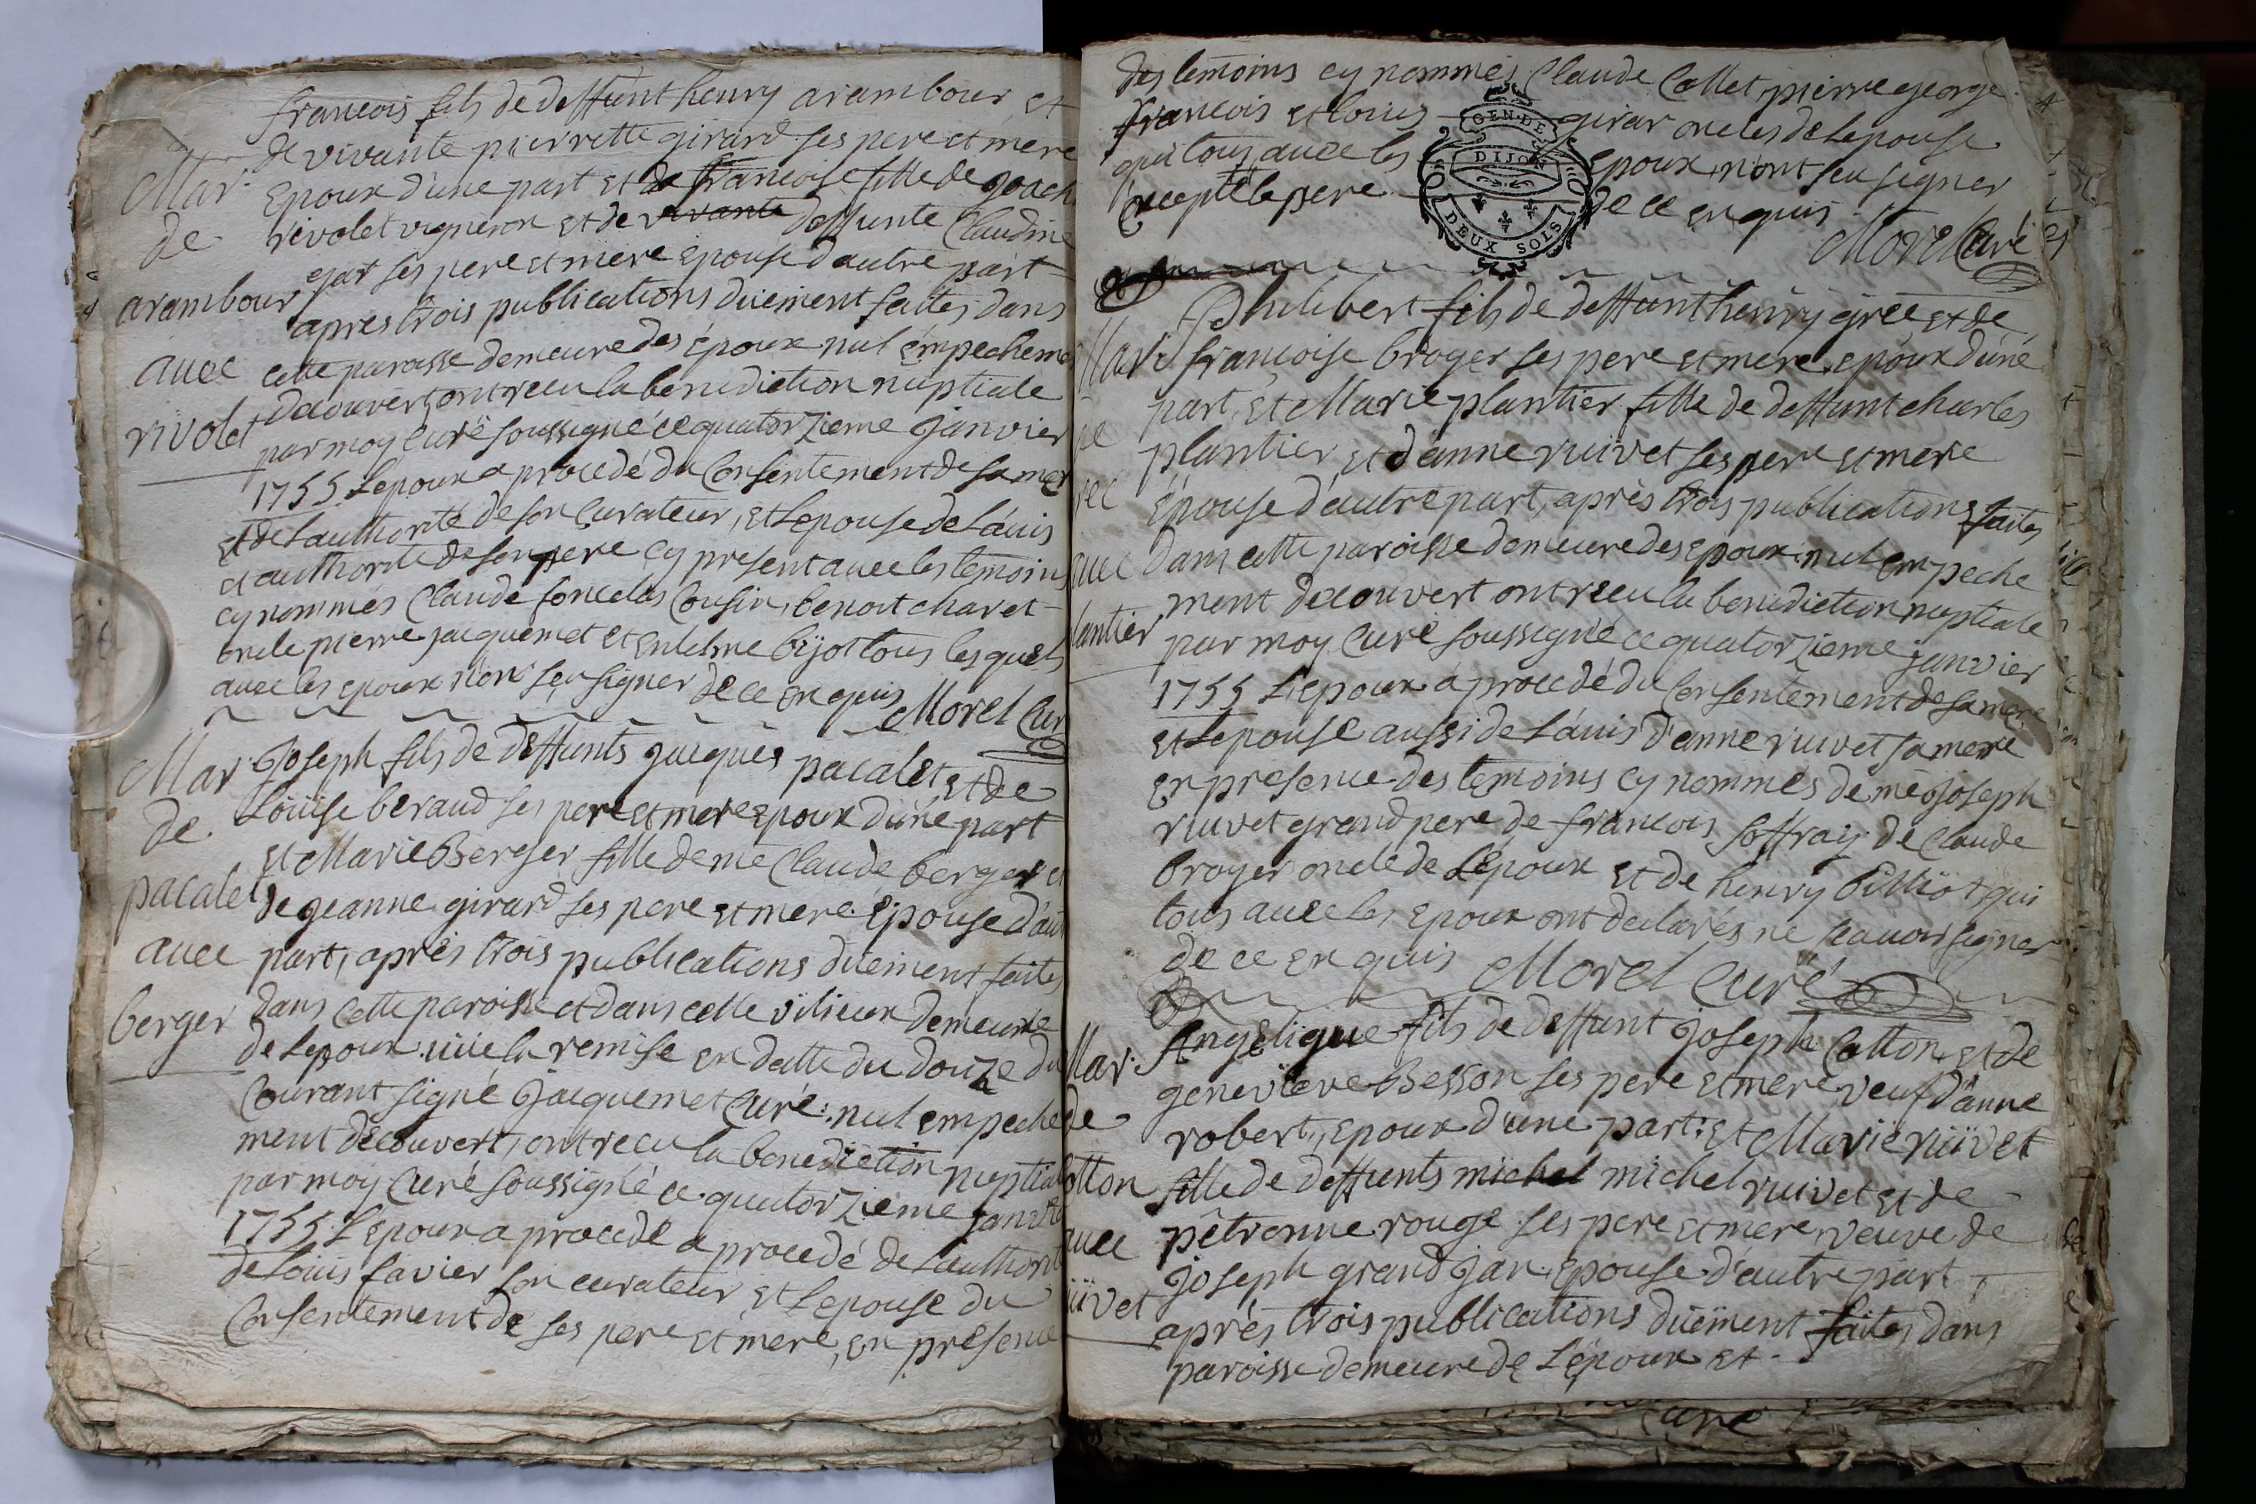 francois fils de deffunt henry arambour et
de vivante pierrette girard ses pere et mere
Mar. Epoux d'une part et de francoise fille de joach
de rivolet vigneron et de vivante deffunte Claudine
ses pere et mere epouse d'autre part
arambour apres trois publications düement faittes dans
avec cette paroisse demeure des époux nul émpecheme
decouvert, ont receu la benediction nuptiale
rivolet par moy curé soussigné ce quatorzieme janvier
1755 Lepoux a procedé du Consentement de sa mer
et de Lauthorité de son Curateur, et Lepouse de L'avis
et authorité de son pere cy present avec les temoins
cy nommes Claude Cousin, benoit charet
oncle pierre jacquemet et bijot tous lesquels
avec les epoux n'ont sçu signer de ce enquis
Morel Cur
Mar Joseph fils de deffunts jacques pacalet et de
de Loüise beraud ses pere et mere epoux d'une part
et Marie Berger fille de me Claude berger et
pacalet de jeanne girard ses pere et mere Épouse d'aut
avec part, après trois publications düement faites
berger dans cette paroisse et dans celle vilieux demeure
de Lepoux vüe la remise en datte du douze du
Courant signé Jacquemet Curé: nul empeche
ment decouvert, ont receu la benediction nuptial
par moy Curé soussigné ce quatorzieme janvier
1755. L'epoux a procede a procedé de Lauthorit
de Loüis favier son curateur et Lepouse du
Consentement de ses pere et mere, en presence
des temoins cy nommés Claude Collet, pierre george
francois et loüis girar oncles de Lepouse
qui tous avec les Epoux n'ont seu signer
éxcepté le pere de ce enquis
GEN·DE
DIJON
DEUX SOLS
Morel Curé
Philibert fils de deffunt henry grée et de
Mar. francoise broyer ses pere et mere, epoux d'une
part, et Marie plantier fille de deffunt charles
plantier et d'anne ruivet ses pere et mere
Épouse d'autre part, après trois publications faites
avec dans cette paroisse demeure des epoux nul empeche
ment decouvert ont receu la benediction nuptiale
lantier par moy Curé soussigné ce quatorzieme janvier
1755 L'epoux a procedé du Consentement de sa mere
et Lepouse aussi de L'avis d'anne ruivet sa mere
en presence des temoins cy nommés de me Joseph
ruivet grand pere de francois soffray de Claude
broyer oncle de Lépoux et de henry billiot qui
tous avec les Epoux ont declarés ne scavoir signer
de ce enquis Morel Curé
Angelique fils de deffunt joseph Cotton et de
Mar. geneviève Besson ses pere et mere veuf d'anne
de robert, epoux d'une part: et Marie rüivet
otton fille de deffunts michel michel ruivet et de
avec pêtronne rouge ses pere et mere veuve de
üivet joseph grand jan, epouse d'autre part,
après trois publications düement faites dans
paroisse demeure de L'époux et
Curé